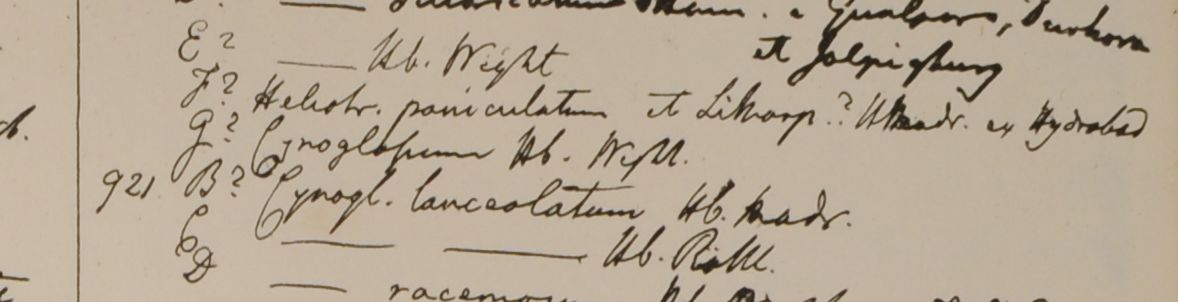 Hb. Ham. e Gualpara,
E? —— Hb. Wight et Jolpigburg
F? Heliotr. paniculatum et Lithosp.? H. Madr. ex Hydrabad
G? Cynoglossum Hb. Wight.
921 B? Cynogl. lanceolatum Hb. Madr.
C —— —— Hb. Rottl.
D —— racemosum Hb.